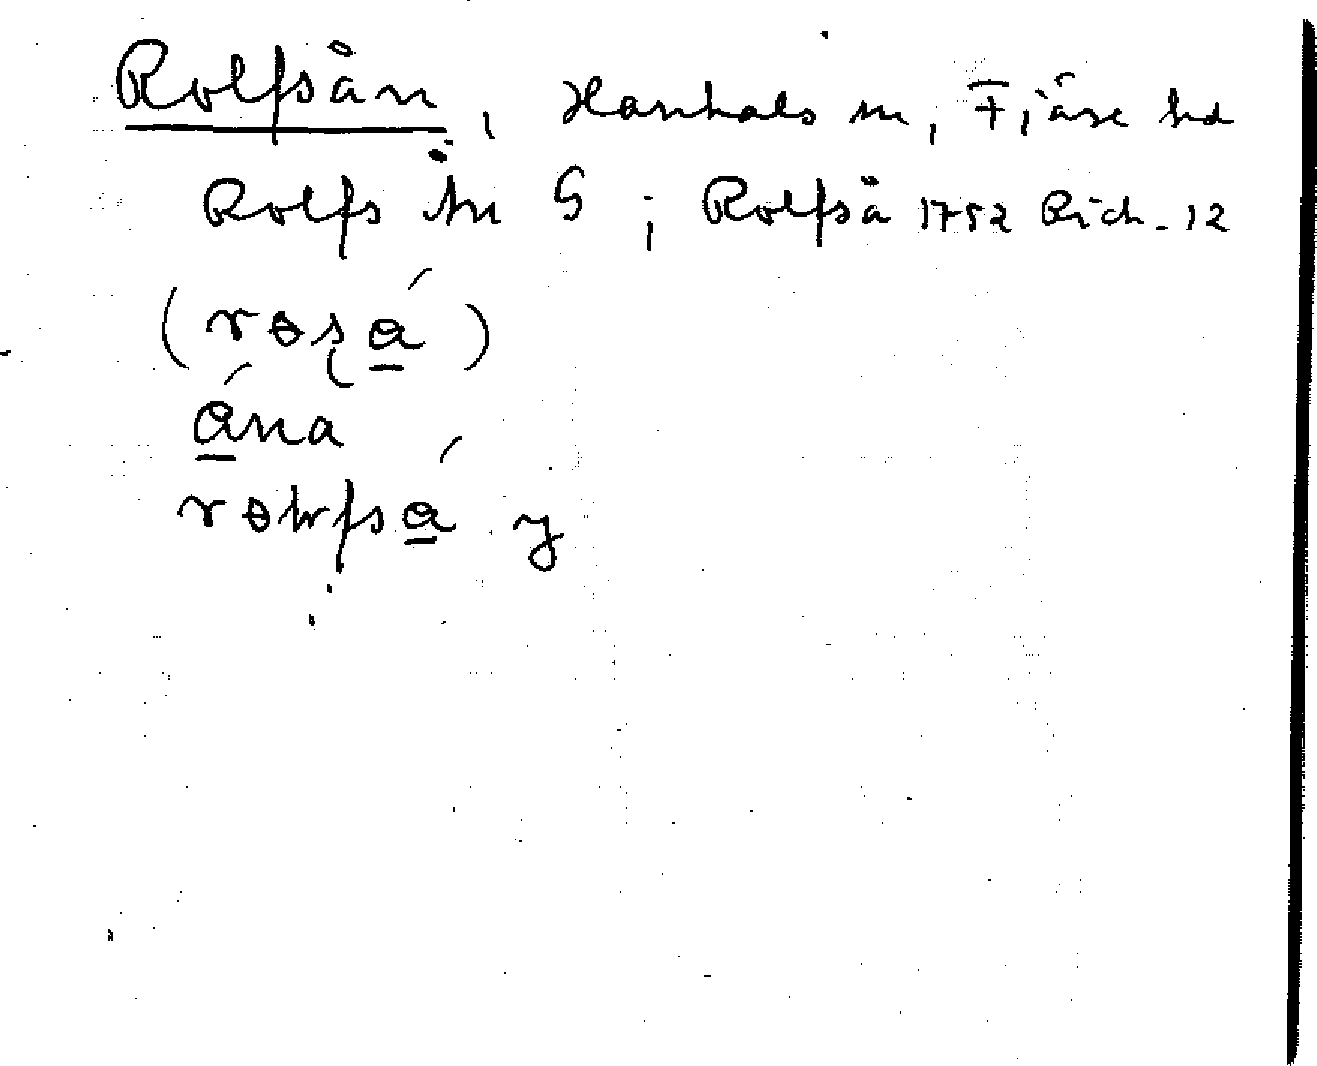 Rolfsån, Hanhals sn, Fjäre hd
Rolfs Ån G; Rolfså 1752 Rich. 12
ána
y